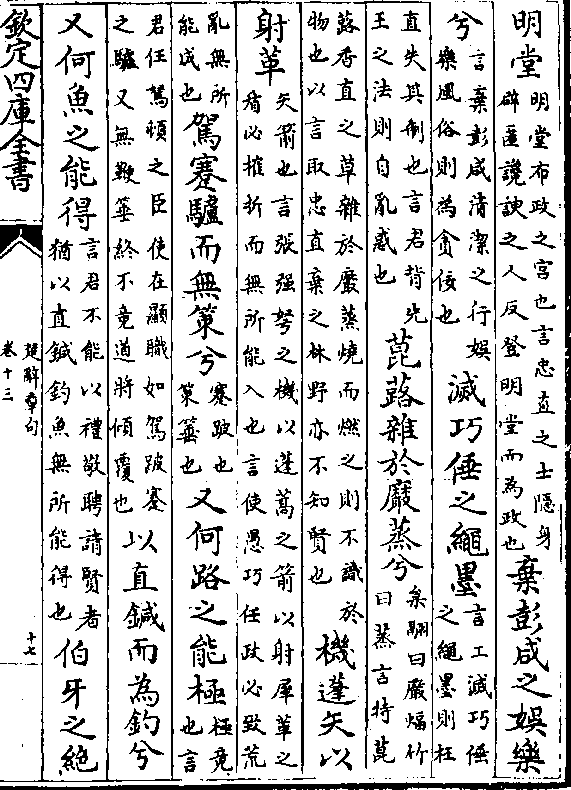 明堂明堂布政之宮也言忠直之士隱身辟匿讒諛之人反登明堂而為政也棄彭咸之娛樂
兮言棄彭咸清潔之行娛樂風俗則為貪佞也滅巧倕之繩墨言工滅巧倕之繩墨則枉
直失其制也言君背先王之法則自亂惑也菎蕗雜於黀蒸兮枲翮曰黀煏竹曰蒸言持菎
蕗香直之草雜於黀蒸燒而燃之則不識於物也以言取忠直棄之林野亦不知賢也機蓬矢以
射革矢箭也言張强弩之機以蓬蒿之箭以射犀革之盾必摧折而無所能入也言使愚巧任政必致荒
亂無所能成也駕蹇驢而無策兮蹇跛也策箠也又何路之能極極竟也言
君任駑頓之臣使在顯職如駕跛蹇之驢又無鞭箠終不竟道將傾覆也以直鍼而為釣兮
又何魚之能得言君不能以禮敬聘請賢者猶以直鍼釣魚無所能得也伯牙之絕
欽定四庫全書
楚辭章句
卷十三
十七